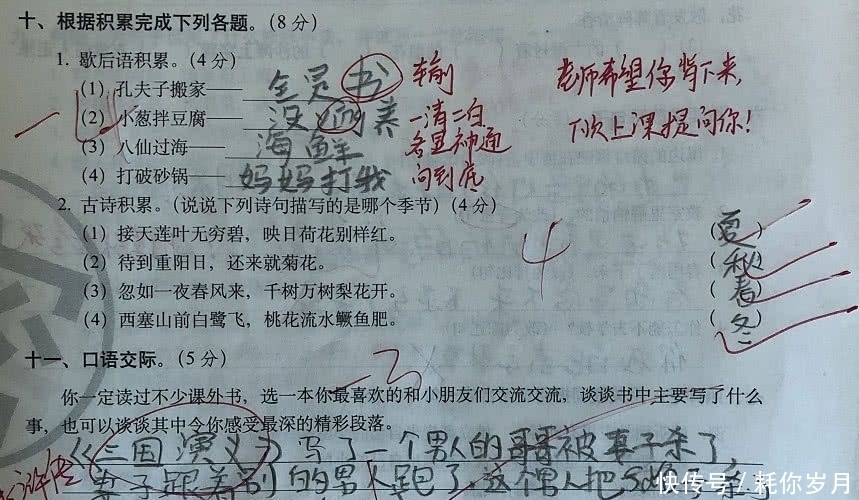 十、根据积累完成下列各题。(8分)
1. 歇后语积累。(4分)
(1) 孔夫子搬家—— 全是书 输
老师希望你背下来,
(2) 小葱拌豆腐—— 没 养 一清二白
下次上课提问你!
(3) 八仙过海—— 海鲜 各显神通
(4) 打破砂锅—— 妈妈打我 问到底
-4
2. 古诗积累。(说说下列诗句描写的是哪个季节)(4分)
(1) 接天莲叶无穷碧,映日荷花别样红。 (夏)
(2) 待到重阳日,还来就菊花。 (秋)
4
(3) 忽如一夜春风来,千树万树梨花开。 (春)
(4) 西塞山前白鹭飞,桃花流水鳜鱼肥。 (冬)
十一、口语交际。(5分) -3
你一定读过不少课外书,选一本你最喜欢的和小朋友们交流交流,谈谈书中主要写了什么
事,也可以谈谈其中令你感受最深的精彩段落。
《三国演义》写了一个男人的哥哥被妻子杀了,
妻子跟着别的男人跑了,这个男人把
快传号/耗你岁月